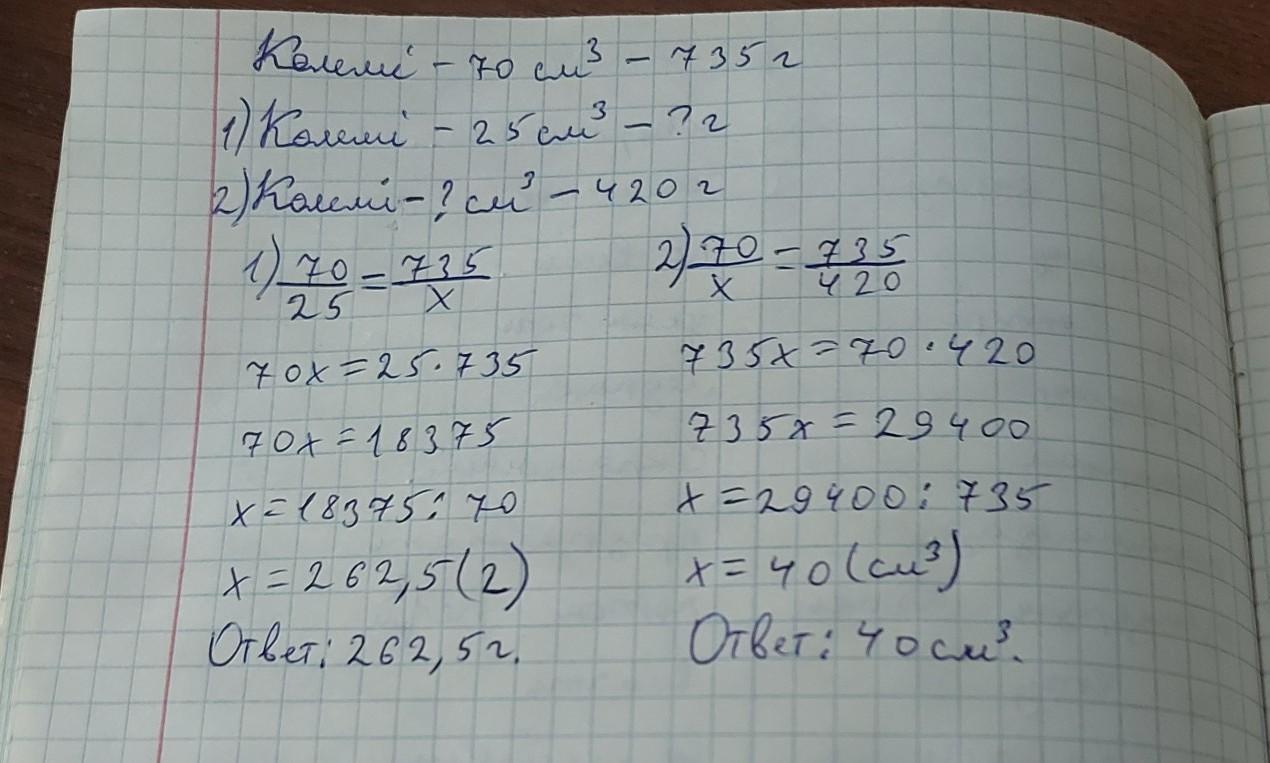 Көлемі - 70 см³ - 735 г
1) Көлемі - 25 см³ - ? г
2) Көлемі - ? см³ - 420 г
1) 70/25 = 735/x
70x = 25 · 735
70x = 18375
x = 18375 : 70
x = 262,5 (г)
Ответ: 262,5 г.
2) 70/x = 735/420
735x = 70 · 420
735x = 29400
x = 29400 : 735
x = 40 (см³)
Ответ: 40 см³.